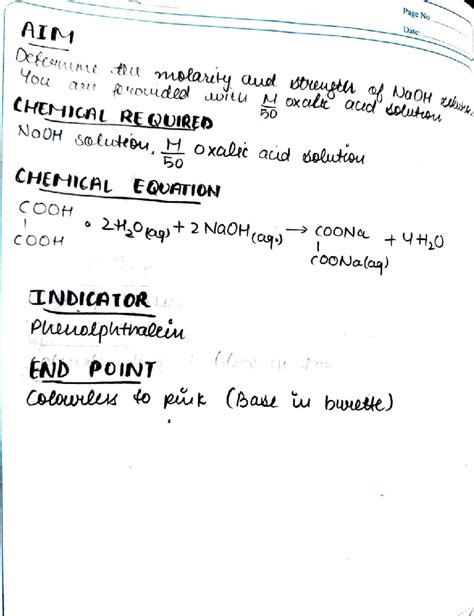 Page No
Date:
AIM
Determine the molarity and strength of NaOH solution
You are provided with M/50 oxalic acid solution
CHEMICAL REQUIRED
NaOH solution, M/50 oxalic acid solution
CHEMICAL EQUATION
COOH
|
COOH
• 2H₂O(aq) + 2 NaOH(aq.) → COONa + 4H₂O
|
COONa(aq)
INDICATOR
Phenolphthalein
END POINT
Colourless to pink (Base in burette)